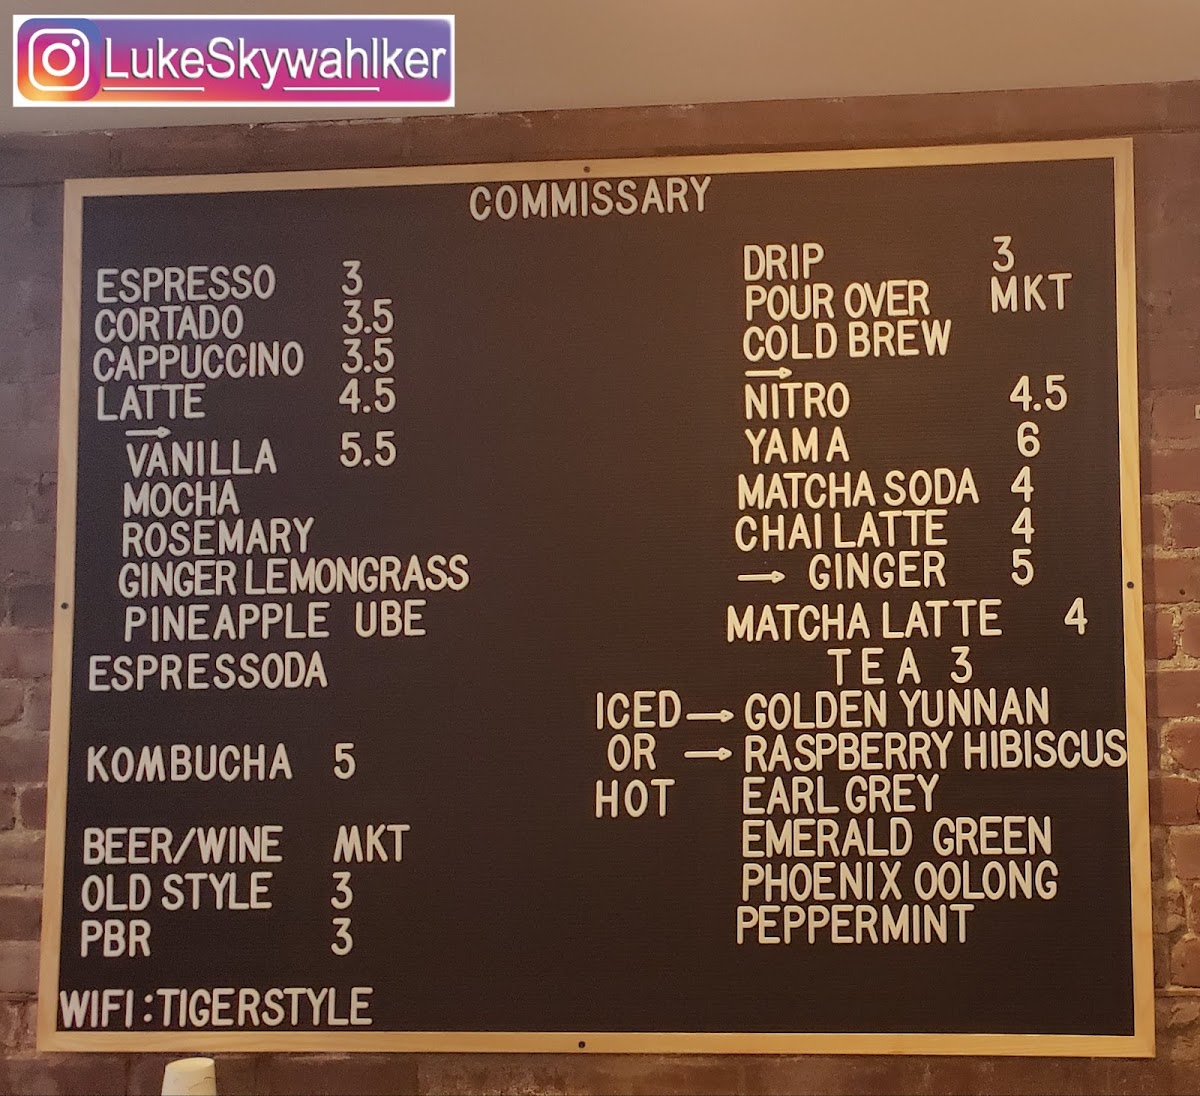 LukeSkywahlker
COMMISSARY
ESPRESSO 3
CORTADO 3.5
CAPPUCCINO 3.5
LATTE 4.5
→
VANILLA 5.5
MOCHA
ROSEMARY
GINGER LEMONGRASS
PINEAPPLE UBE
ESPRESSODA
KOMBUCHA 5
BEER/WINE MKT
OLD STYLE 3
PBR 3
WIFI:TIGERSTYLE
DRIP 3
POUR OVER MKT
COLD BREW
→
NITRO 4.5
YAMA 6
MATCHA SODA 4
CHAI LATTE 4
→ GINGER 5
MATCHA LATTE 4
TEA 3
ICED → GOLDEN YUNNAN
OR → RASPBERRY HIBISCUS
HOT EARL GREY
EMERALD GREEN
PHOENIX OOLONG
PEPPERMINT